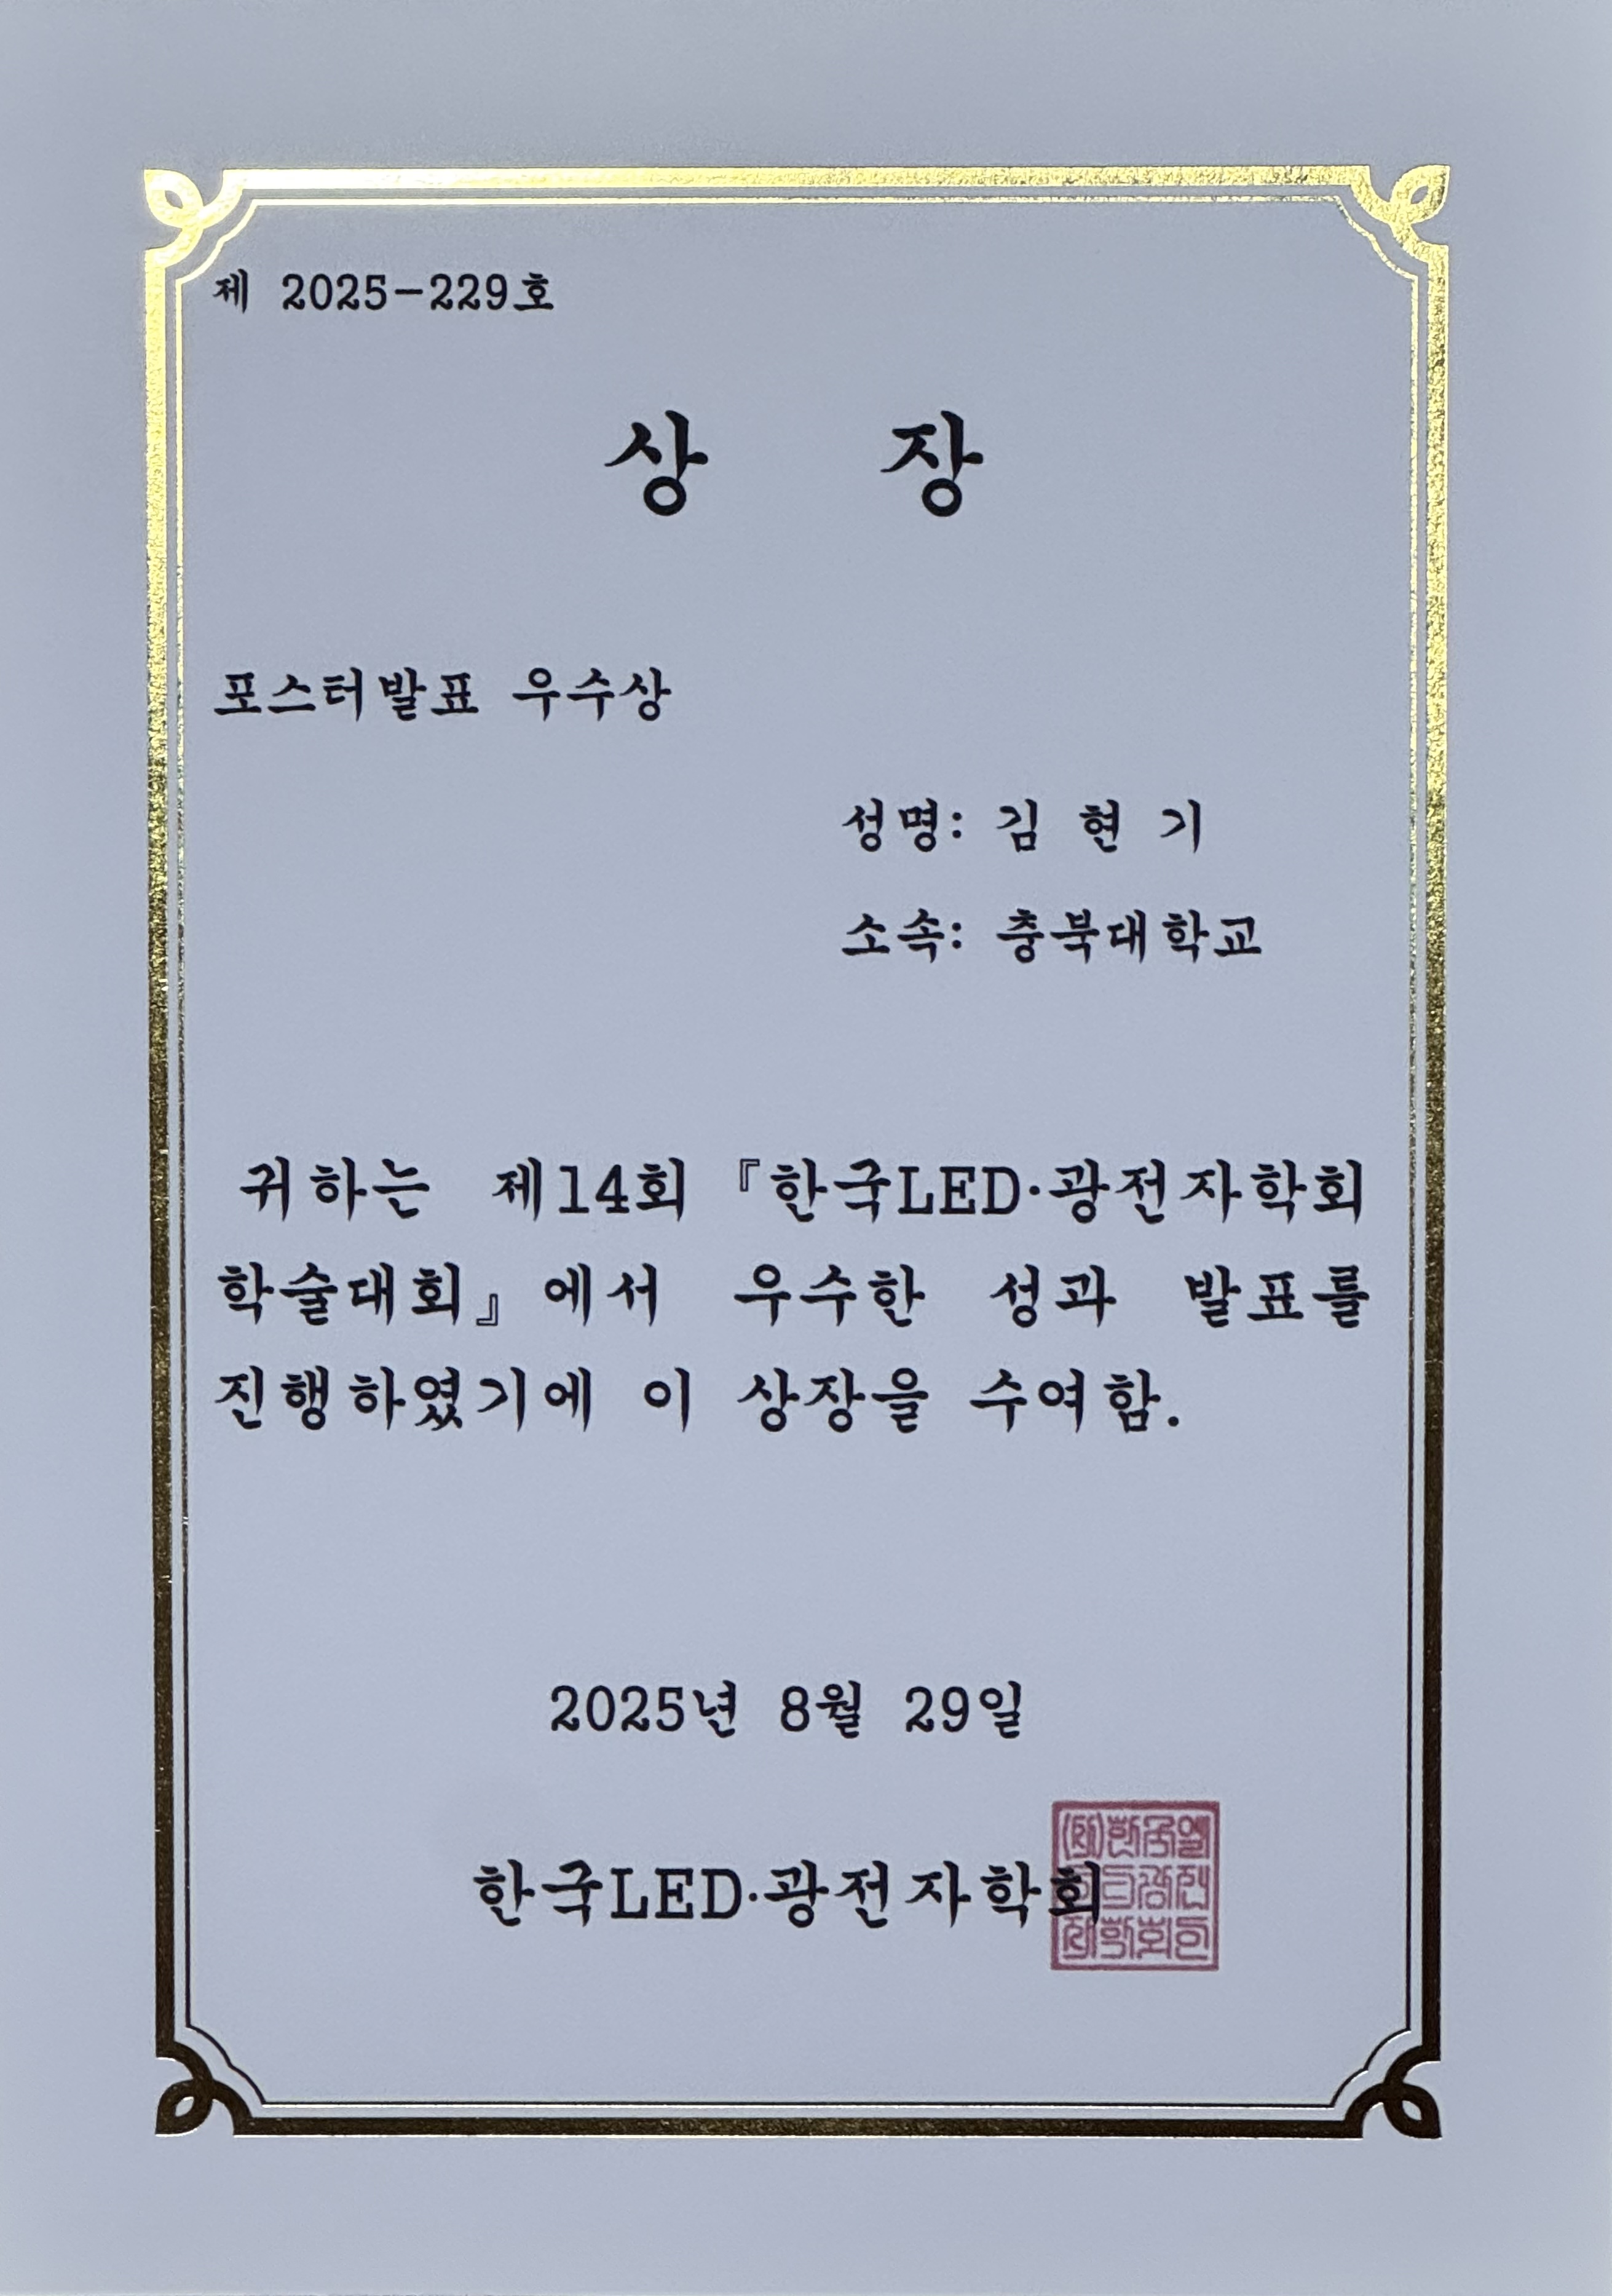 제 2025-229호
상 장
포스터발표 우수상
성명: 김 현 기
소속: 충북대학교
귀하는 제14회 『한국LED·광전자학회
학술대회』에서 우수한 성과 발표를
진행하였기에 이 상장을 수여함.
2025년 8월 29일
한국LED·광전자학회